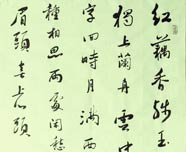 紅藕香殘玉
獨上蘭舟雲中
字回時月滿西
種相思兩處閑愁
眉頭卻上心頭